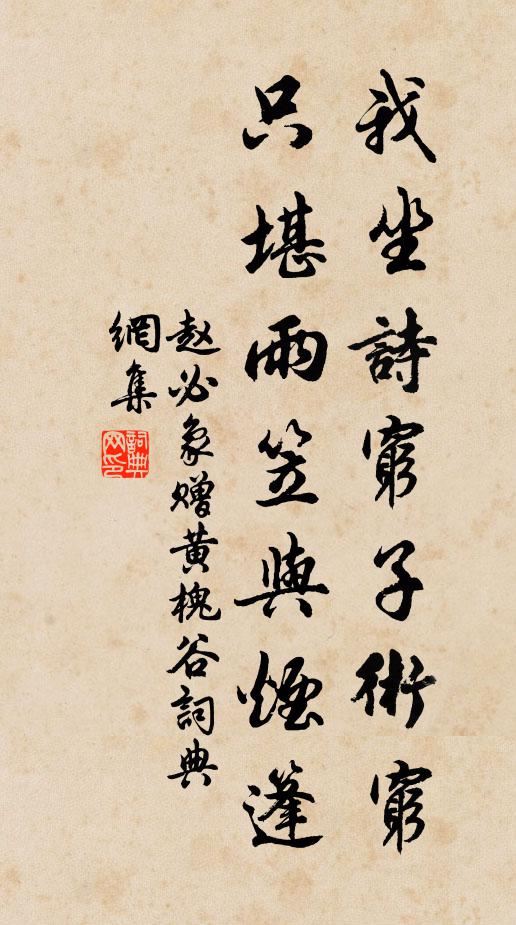 我坐詩窮子術窮
只堪雨笠與煙篷
赵必象赠黄槐谷詞典
網集
詞典网印